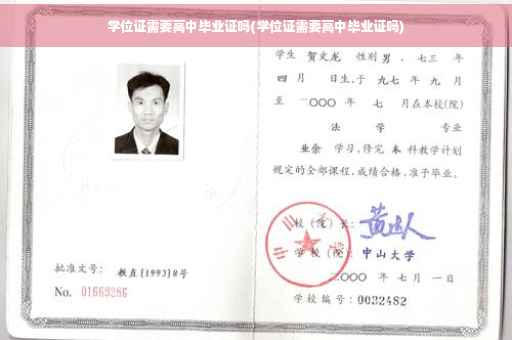 学位证需要高中毕业证吗(学位证需要高中毕业证吗)
学生 贺文龙 性别 男 、七三 年
四 月 日生,于 九七 年 九 月
至 二〇〇〇 年 七 月在本校(院)
法 学 专业
业余 学习,修完 本 科教学计划
规定的全部课程,成绩合格,准予毕业。
校(院)长:
学校(院): 中山大学
二〇〇〇 年 七 月 一 日
批准文号: 教直[1993]8号
No. 01669286
学校编号: 0032482